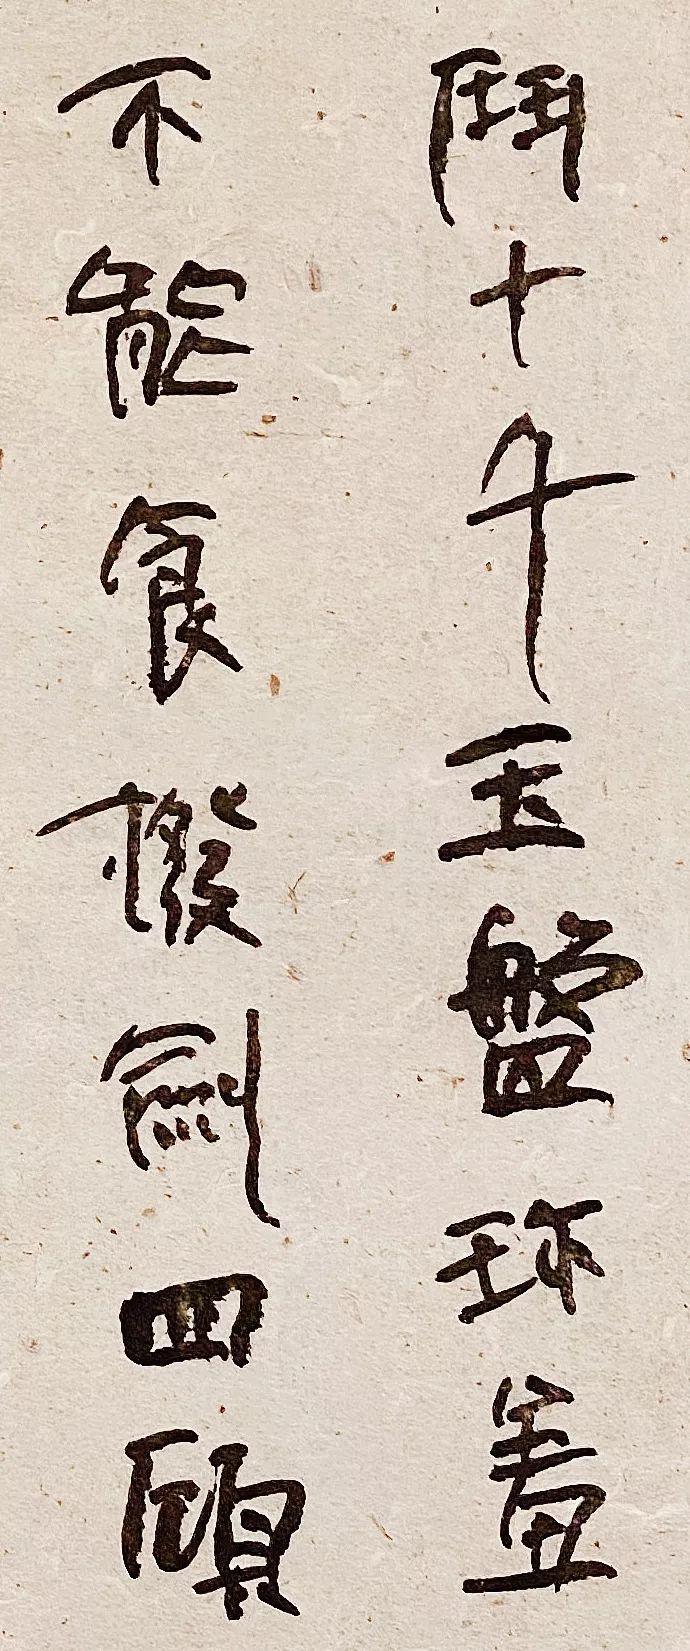 鬥十千玉盤珎羞
不能食撥劍四顧